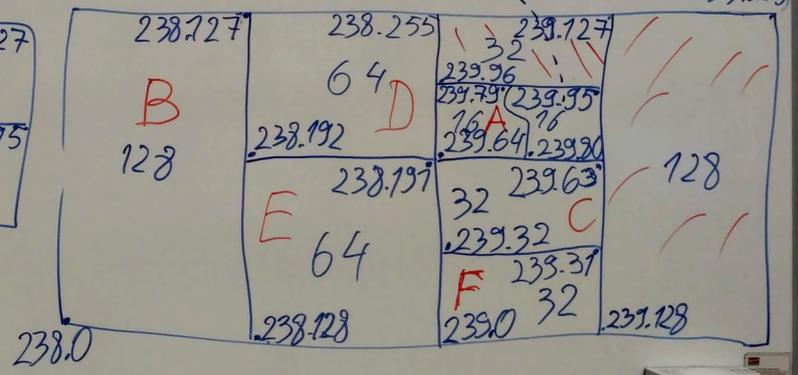 27
75
238.127
B
128
238.0
238.255
64
D
.238.192
238.191
E
64
.238.128
239.127
32
239.96
239.79
16
A
.239.64
239.95
16
.239.80
239.63
32
C
.239.32
239.31
F
32
239.0
128
.239.128